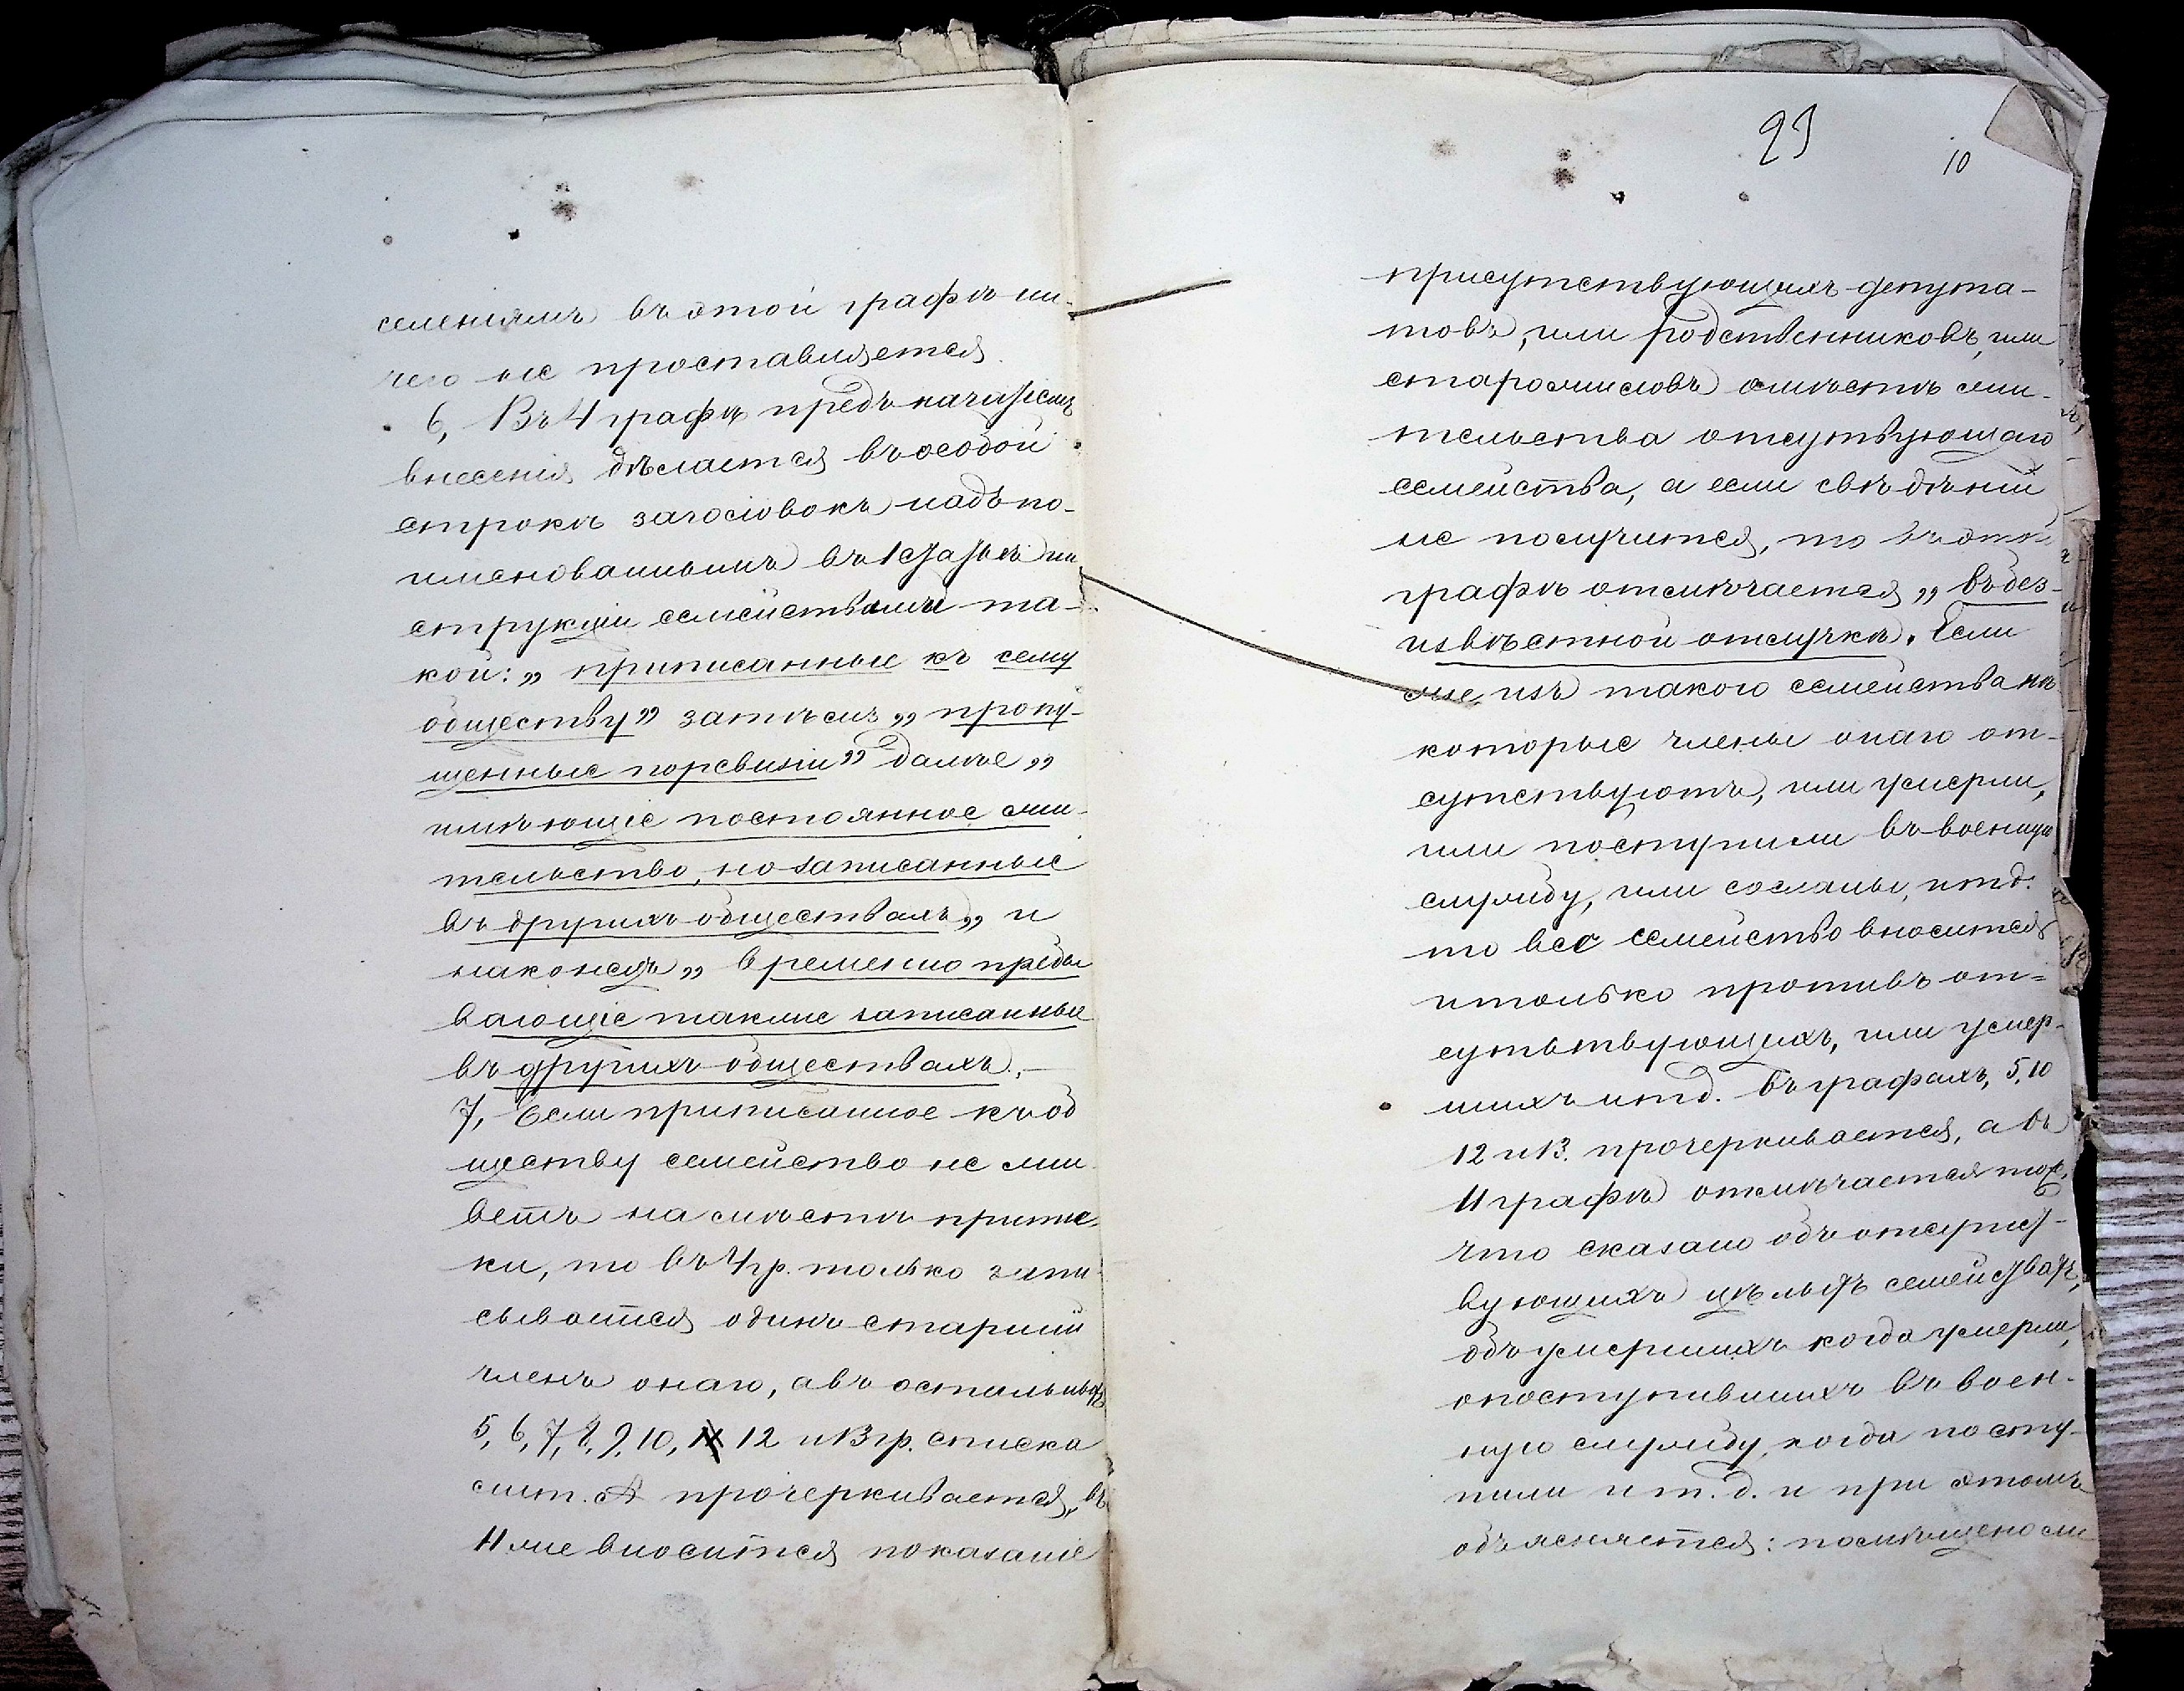 селеніямъ въ этой графѣ ни-
чего не проставляется.
6, Въ 4 графѣ предъ началомъ
внесенія дѣлается въ особой
строкѣ заголовокъ надъ по-
именованными въ 1 статьѣ ин
струкціи семействами та-
кой: „ приписанные къ сему
обществу” затѣмъ „ пропу-
щенные по ревизіи” далѣе „
имѣющіе постоянное жи-
тельство, но записанные
въ другихъ обществахъ „ и
наконецъ „ временно пребы
вающіе также записанные
въ другихъ обществахъ. —
7, Если приписанное къ об
ществу семейство не жи-
ветъ на мѣстѣ припис-
ки, то въ 4 гр. только запи-
сывается одинъ старшій
членъ онаго, а въ остальныхъ
5, 6, 7, 8, 9, 10, 12 и 13 гр. списка
лит. А прочеркивается, въ
11 же вносится показаніе
23
10
присутствующихъ депута-
товъ, или родственниковъ, или
старожиловъ о мѣстѣ жи-
тельства отсутвующаго
семейства, а если свѣдѣній
не получится, то въ этой
графѣ отмѣчается „ въ без-
извѣстной отлучкѣ. Если
же изъ такого семейства нѣ-
которые члены онаго от-
сутствуютъ, или умерли,
или поступили въ военную
службу, или сосланы, и т д.
то все семейство вносится
и только противъ от-
сутьтвующихъ, или умер-
шихъ и т д. въ графахъ, 5, 10
12 и 13. прочеркивается, а въ
11 графѣ отмѣчается тоже,
что сказано объ отсутст-
вующихъ цѣлыхъ семействахъ,
объ умершихъ когда умерли,
о поступившихъ въ воен-
ную службу, когда посту-
пили и т. д. и при этомъ
объясняется: помѣщено ли